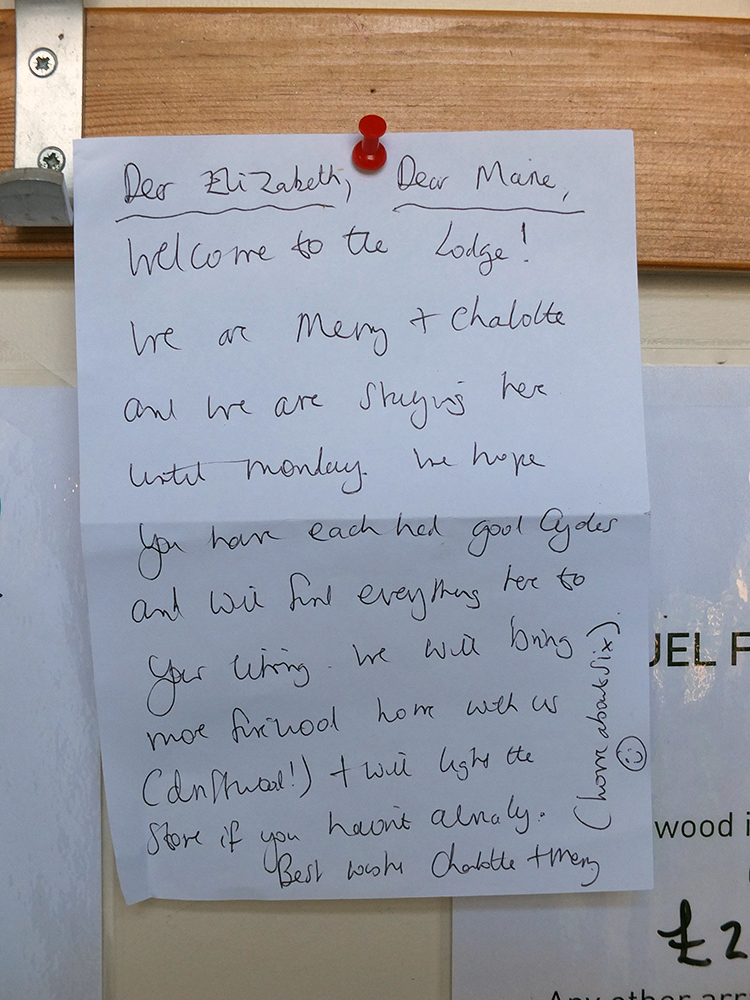 Dear Elizabeth, Dear Maire,
Welcome to the Lodge!
We are Merry + Chalotte
and we are staying here
until monday. We hope
you have each had good Cycles
and will find everything here to
your liking. We will bring
more firewood home with us
(driftwood!) + will light the
stove if you haven't already.
(home about six).
Best wishes Chalotte + Merry
UEL F
wood i
£2
Any other arr